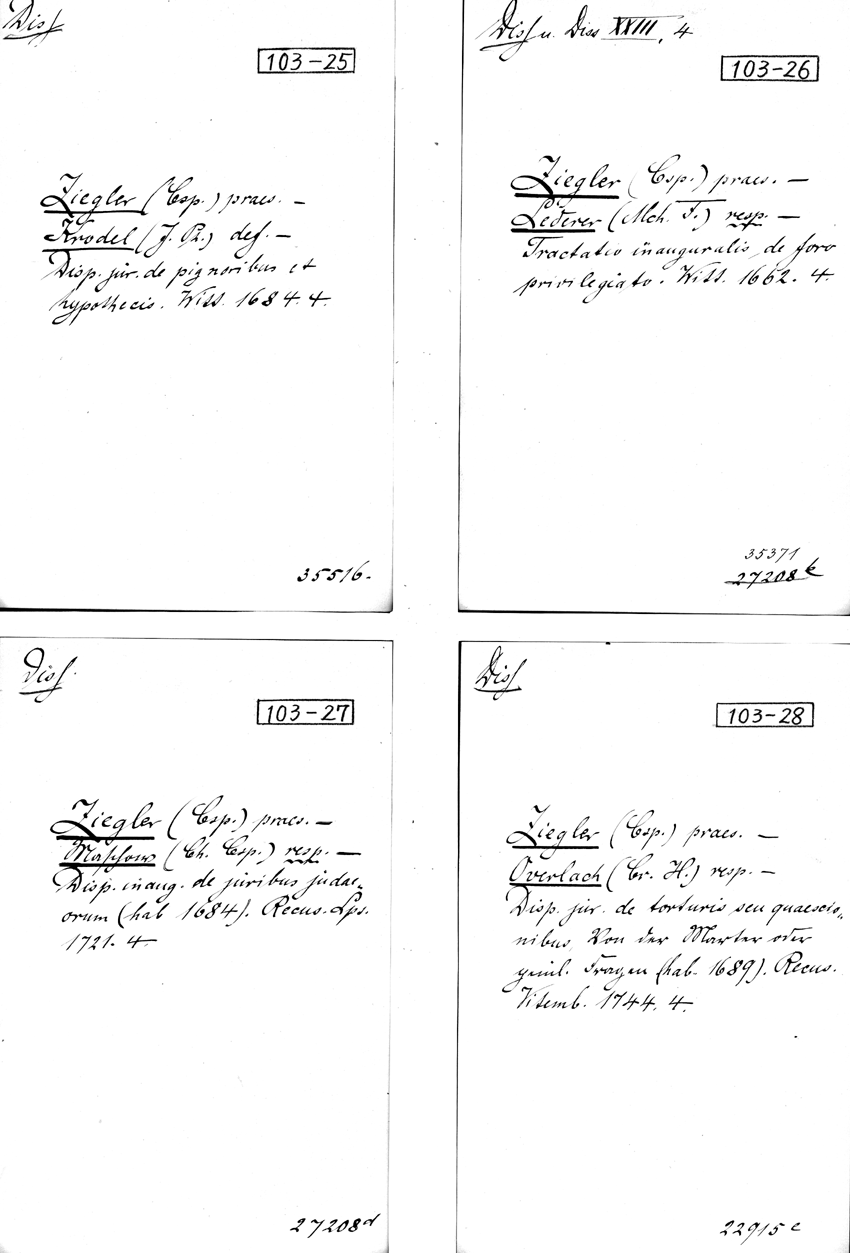 Diss
103-25
Ziegler (Csp.) praes. —
Krodel (J. Pt.) def. —
Disp. jur. de pignoribus et
hypothecis. Witt. 1684. 4.
35516.
Diss u. Diss XXIII, 4
103-26
Ziegler (Csp.) praes. —
Lederer (Mch. F.) resp. —
Tractatio inauguralis de foro
privilegiato. Witt. 1662. 4.
35371
27208
Diss.
103-27
Ziegler (Csp.) praes. —
(Ch. Csp.) resp. —
Disp. inaug. de juribus judae-
orum (hab 1684). Recus. Lps.
1721. 4.
27208d
Diss
103-28
Ziegler (Csp.) praes. —
Overlach (Cr. H.) resp. —
Disp. jur. de torturis seu quaescio-
nibus, Von der Marter oder
peinl. Fragen (hab. 1689). Recus.
Vitemb. 1744. 4.
22915c